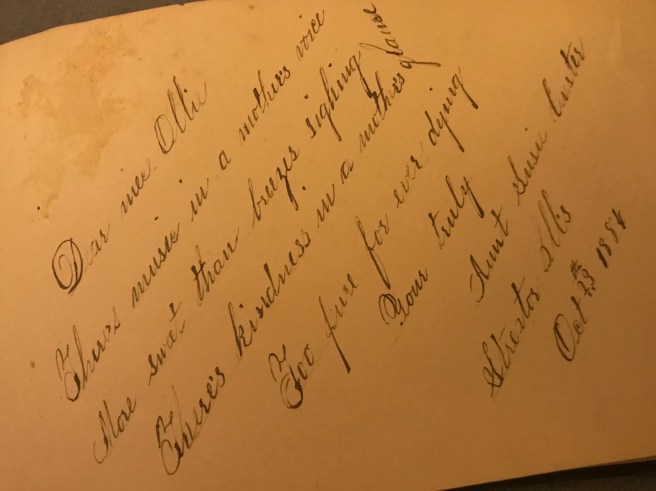 Dear niece Ollie
Theres music in a mothers voice
More sweet than breezes sighing
There's kindness in a mothers glance
Too pure for ever dying
Your truly
Aunt Susie Custer
Streator Ills
Oct 23th 1884